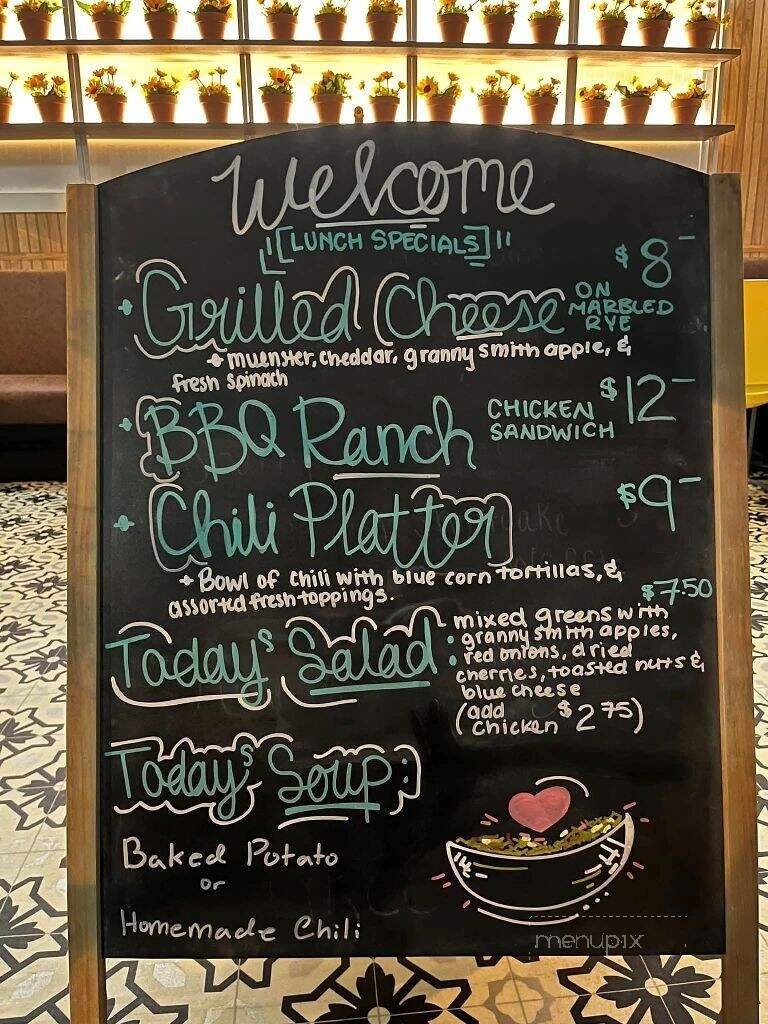 Welcome
LUNCH SPECIALS
$8-
+ Grilled Cheese ON MARBLED RYE
+ muenster, cheddar, granny smith apple, &
fresh spinach
+ BBQ Ranch CHICKEN SANDWICH $12-
+ Chili Platter $9-
+ Bowl of chili with blue corn tortillas, &
assorted fresh toppings.
$7.50
Today's Salad:
mixed greens with
granny smith apples,
red onions, dried
cherries, toasted nuts &
blue cheese
(add chicken $2.75)
Today's Soup:
Baked Potato
or
Homemade Chili
menupix